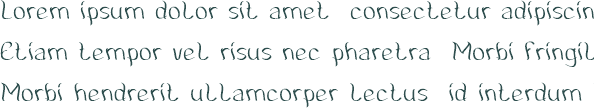 Lorem ipsum dolor sit amet consectetur adipiscin
Etiam tempor vel risus nec pharetra Morbi fringil
Morbi hendrerit ullamcorper lectus id interdum